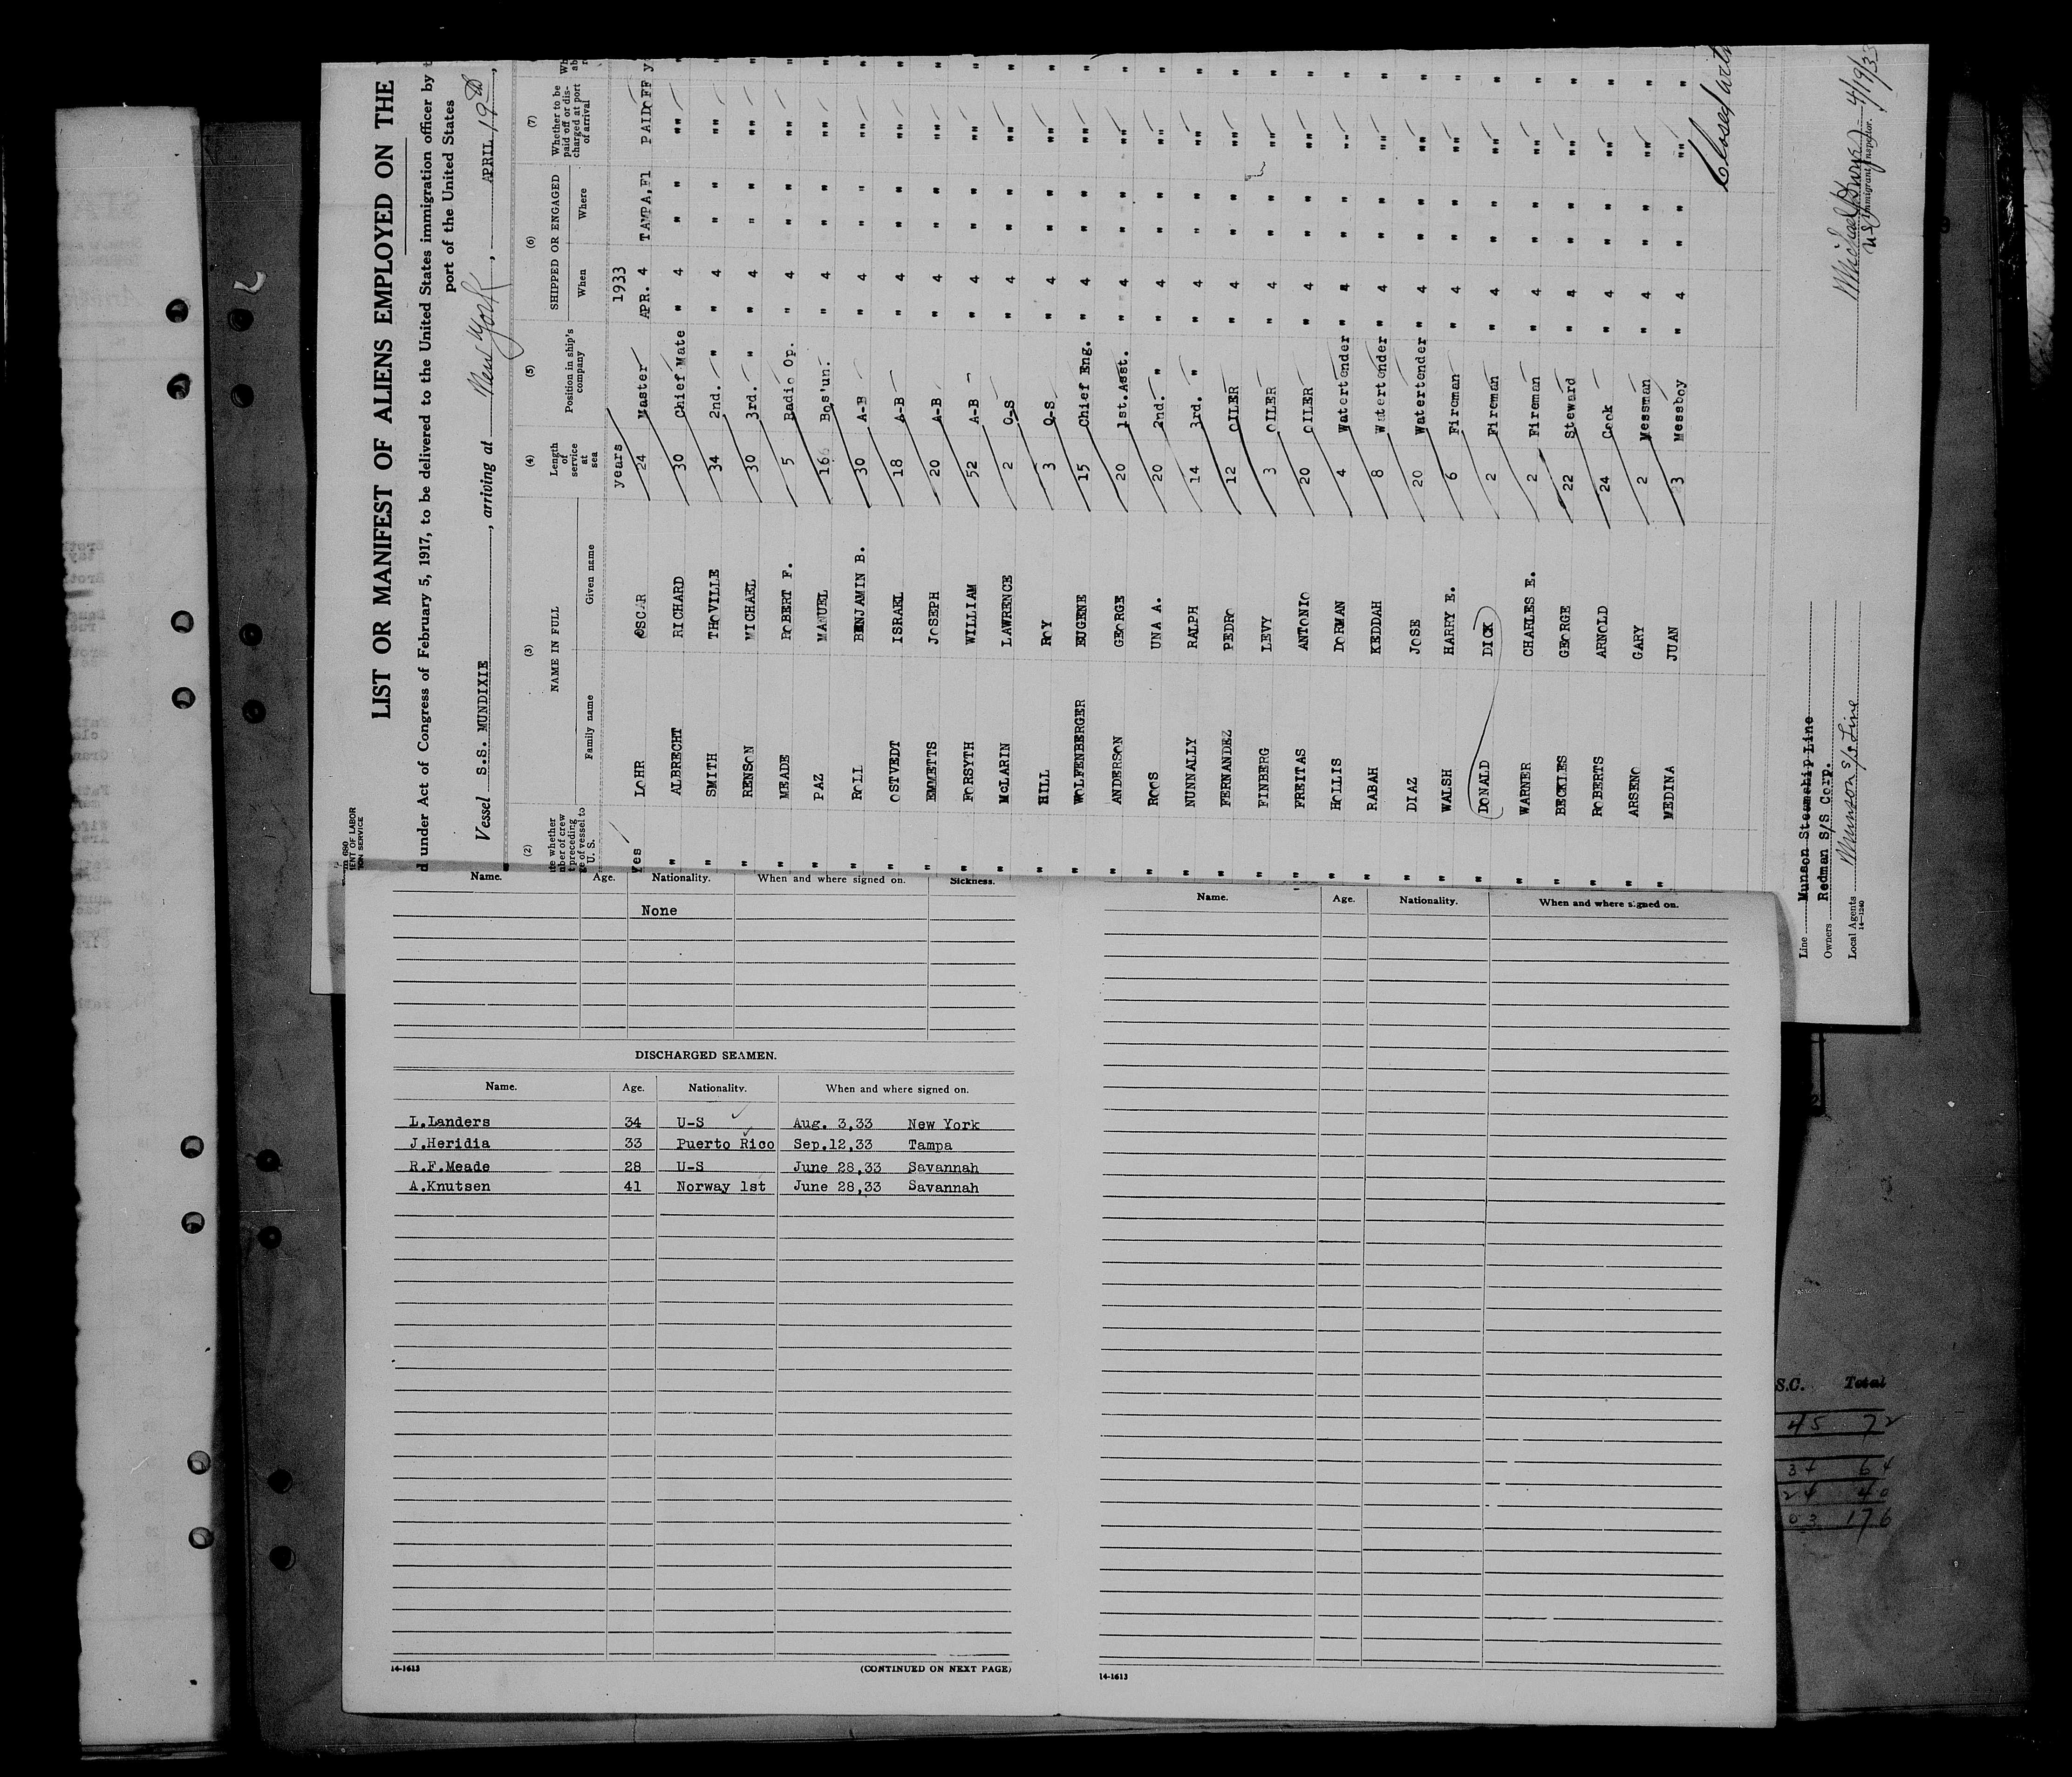 LIST OR MANIFEST OF ALIENS EMPLOYED ON THE
d under Act of Congress of February 5, 1917, to be delivered to the United States immigration officer by
port of the United States
Vessel S.S. MUNDIXIE, arriving at New York, APRIL 19th,
(2) (3) (4) (5) (6) (7)
NAME IN FULL Length of service at sea Position in ship's company SHIPPED OR ENGAGED Whether to be paid off or discharged at port of arrival
Family name Given name When Where
years 1933
Yes LOHR OSCAR 24 Master APR. 4 TAMPA, Fl PAID OFF y
" ALBRECHT RICHARD 30 Chief Mate " 4 " " "" "
" SMITH THOVILLE 34 2nd. " " 4 " " "" "
" RENSON MICHAEL 30 3rd. " " 4 " " "" "
" MEADE ROBERT F. 5 Radio Op. " 4 " " "" "
" PAZ MANUEL 16 Bos'un. " 4 " " "" "
" ROLL BENJAMIN B. 30 A-B " 4 " " "" "
" OSTVEDT ISRAEL 18 A-B " 4 " " "" "
" EMMETTS JOSEPH 20 A-B " 4 " " "" "
" FORSYTH WILLIAM 52 A-B " 4 " " "" "
" McLARIN LAWRENCE 2 O-S " 4 " " "" "
" HILL ROY 3 O-S " 4 " " "" "
" WOLFENBERGER EUGENE 15 Chief Eng. " 4 " " "" "
" ANDERSON GEORGE 20 1st.Asst. " 4 " " "" "
" ROOS UNA A. 20 2nd. " " 4 " " "" "
" NUNNALLY RALPH 14 3rd. " " 4 " " "" "
" FERNANDEZ PEDRO 12 OILER " 4 " " "" "
" FINBERG LEVY 3 OILER " 4 " " "" "
" FREITAS ANTONIO 20 OILER " 4 " " "" "
" HOLLIS DORMAN 4 Watertender " 4 " " "" "
" RABAH KEDDAH 8 Watertender " 4 " " "" "
" DIAZ JOSE 20 Watertender " 4 " " "" "
" WALSH HARRY E. 6 Fireman " 4 " " "" "
" DONALD DICK 2 Fireman " 4 " " "" "
" WARNER CHARLES E. 2 Fireman " 4 " " "" "
" BECKLES GEORGE 22 Steward " 4 " " "" "
" ROBERTS ARNOLD 24 Cook " 4 " " "" "
" ARSENO GARY 2 Messman " 4 " " "" "
" MEDINA JUAN 3 Messboy " 4 " " "" "
Closed with
Line Munson Steamship Line
Owners Redman S/S Corp.
Local Agents Munson S/S Line
14-1240
Michael 4/19/33
Immigrant Inspector.
Name. Age. Nationality. When and where signed on. Sickness.
None
DISCHARGED SEAMEN.
Name. Age. Nationality. When and where signed on.
L.Landers 34 U-S Aug. 3,33 New York
J.Heridia 33 Puerto Rico Sep.12,33 Tampa
R.F.Meade 28 U-S June 28,33 Savannah
A.Knutsen 41 Norway 1st June 28,33 Savannah
14-1613 (CONTINUED ON NEXT PAGE)
Name. Age. Nationality. When and where signed on.
14-1613
S.C. Total
45 72
34 64
24 40
03 176